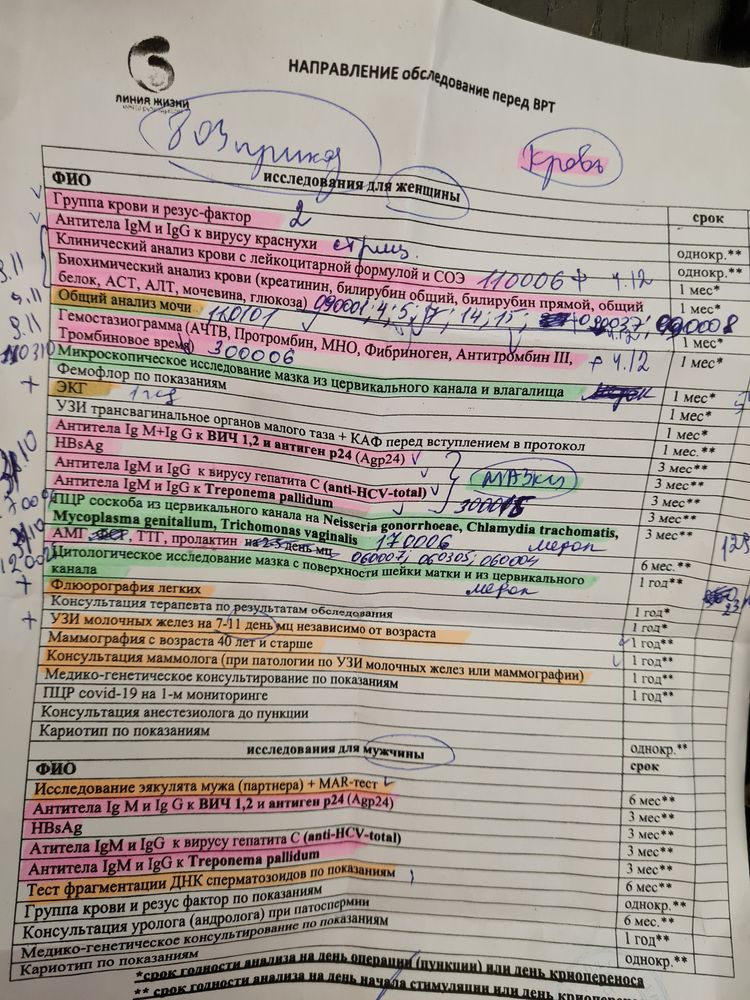 ЛИНИЯ ЖИЗНИ
НАПРАВЛЕНИЕ обследование перед ВРТ
803 приказ
Кровь
исследования для женщины
ФИО срок
Группа крови и резус-фактор 2 однокр.**
Антитела IgM и IgG к вирусу краснухи однокр.**
Клинический анализ крови с лейкоцитарной формулой и СОЭ 110006 + 4.12 1 мес*
Биохимический анализ крови (креатинин, билирубин общий, билирубин прямой, общий
белок, АСТ, АЛТ, мочевина, глюкоза) 090001; 4; 5; 14; 15; 1 мес*
Общий анализ мочи 110101 1 мес*
Гемостазиограмма (АЧТВ, Протромбин, МНО, Фибриноген, Антитромбин III, + 4.12
Тромбиновое время) 300006 1 мес*
Микроскопическое исследование мазка из цервикального канала и влагалища 1 мес*
Фемофлор по показаниям 1 мес*
+ ЭКГ 1 мес*
УЗИ трансвагинальное органов малого таза + КАФ перед вступлением в протокол 1 мес.**
Антитела Ig M+Ig G к ВИЧ 1,2 и антиген p24 (Agp24) 3 мес**
HBsAg 3 мес**
Антитела IgM и IgG к вирусу гепатита С (anti-HCV-total) мазки 3 мес**
Антитела IgM и IgG к Treponema pallidum 3 мес**
ПЦР соскоба из цервикального канала на Neisseria gonorrhoeae, Chlamydia trachomatis,
Mycoplasma genitalium, Trichomonas vaginalis 170006 3 мес**
АМГ, ФСГ, ТТГ, пролактин на 2-5 день мц 060007; 060305; 060004 6 мес.**
Цитологическое исследование мазка с поверхности шейки матки и из цервикального
канала 1 год**
+ Флюорография легких 1 год*
Консультация терапевта по результатам обследования 1 год*
+ УЗИ молочных желез на 7-11 день мц независимо от возраста 1 год**
Маммография с возраста 40 лет и старше 1 год**
Консультация маммолога (при патологии по УЗИ молочных желез или маммографии) 1 год**
Медико-генетическое консультирование по показаниям
ПЦР covid-19 на 1-м мониторинге
Консультация анестезиолога до пункции
Кариотип по показаниям однокр.**
исследования для мужчины
ФИО срок
Исследование эякулята мужа (партнера) + MAR-тест 6 мес**
Антитела Ig M и Ig G к ВИЧ 1,2 и антиген p24 (Agp24) 3 мес**
HBsAg 3 мес**
Атитела IgM и IgG к вирусу гепатита С (anti-HCV-total) 3 мес**
Антитела IgM и IgG к Treponema pallidum 3 мес**
Тест фрагментации ДНК сперматозоидов по показаниям 6 мес**
Группа крови и резус фактор по показаниям однокр.**
Консультация уролога (андролога) при патоспермии 6 мес.**
Медико-генетическое консультирование по показаниям 1 год**
Кариотип по показаниям однокр.**
*срок годности анализа на день операции (пункции) или день криопереноса
** срок годности анализа на день начала стимуляции или день